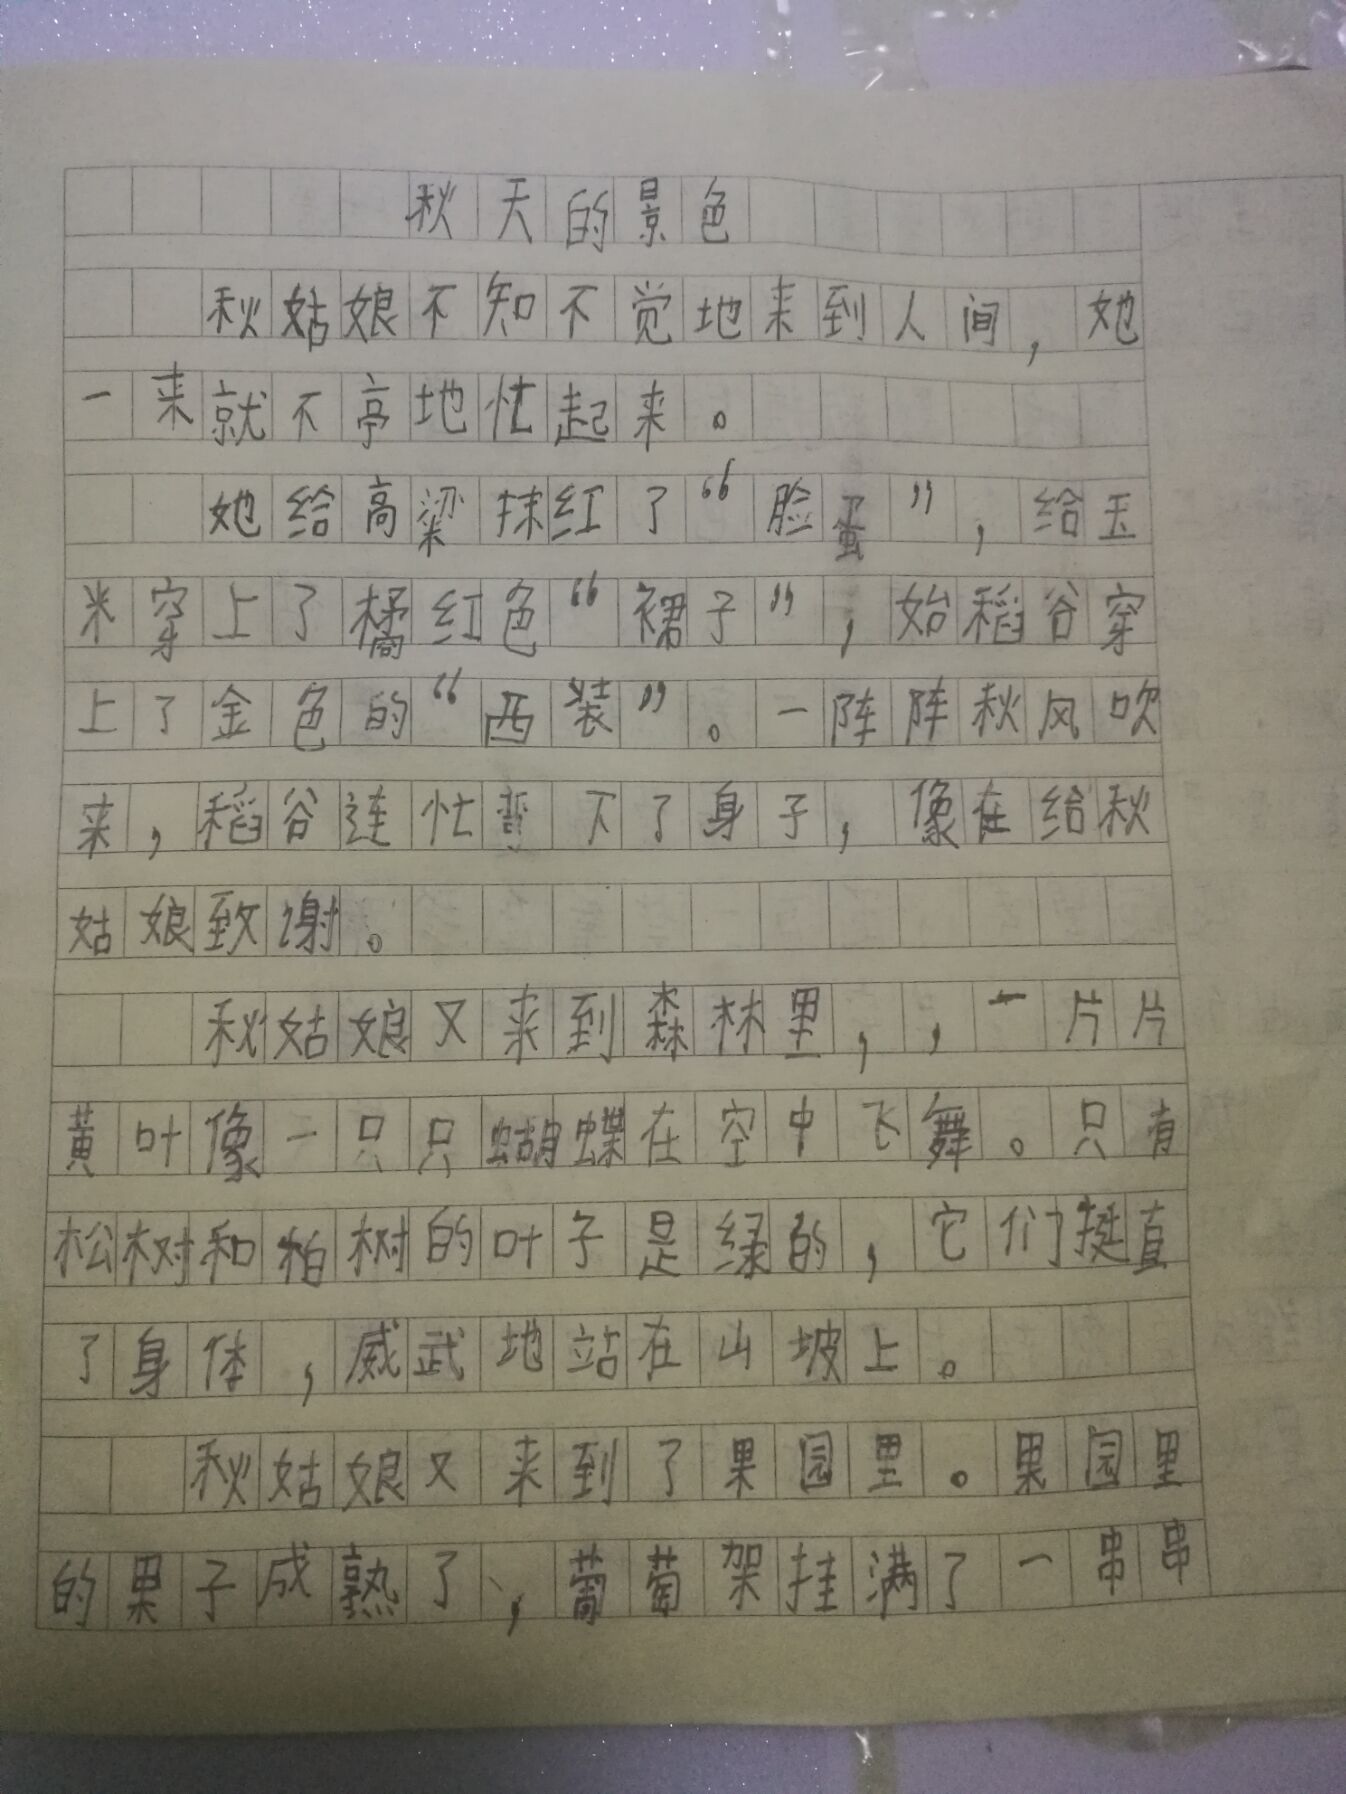 秋天的景色
秋姑娘不知不觉地来到人间，她
一来就不亭地忙起来。
她给高粱抹红了“脸蛋”，给玉
米穿上了橘红色“裙子”，始稻谷穿
上了金色的“西装”。一阵阵秋风吹
来，稻谷连忙下了身子，像在给秋
姑娘致谢。
秋姑娘又来到森林里，，一片片
黄叶像一只只蝴蝶在空中飞舞。只有
松树和柏树的叶子是绿的，它们挺直
了身体，威武地站在山坡上。
秋姑娘又来到了果园里。果园里
的果子成熟了、，葡萄架挂满了一串串